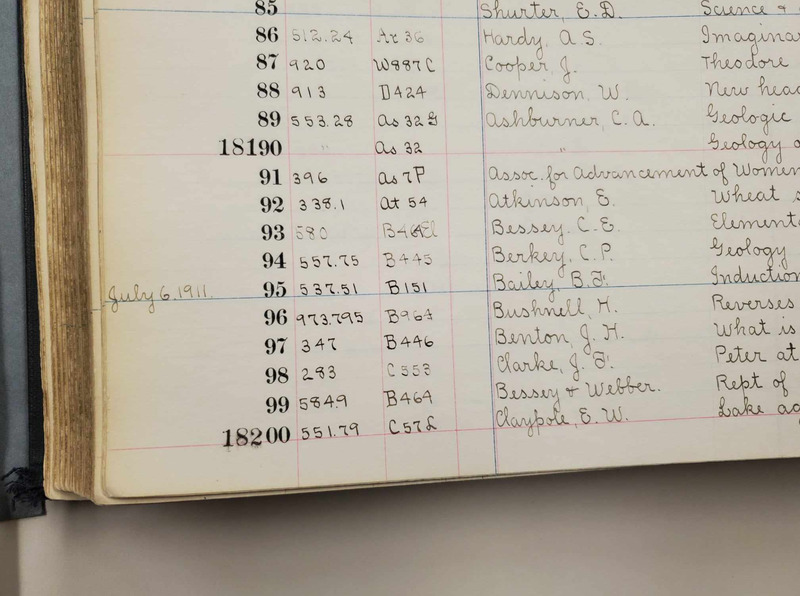 85 Shurter, E.D. Science &
86 512.24 Ar 36 Hardy, A.S. Imagina
87 920 W887C Cooper, J. Theodore
88 913 D424 Dennison, W. New hea
89 553.28 As 32 G Ashburner, C.A. Geologic
18190 " As 32 " Geology o
91 396 As7P Assoc. for Advancement of Women
92 338.1 At 54 Atkinson, E. Wheat
93 580 B46El Bessey, C.E. Element
94 557.75 B445 Berkey, C.P. Geology
July 6, 1911. 95 537.51 B151 Bailey, B.F. Induction
96 973.795 B964 Bushnell, H. Reverses
97 347 B446 Benton, J.H. What is
98 283 C553 Clarke, J.F. Peter at
99 584.9 B464 Bessey & Webber. Rept of
18200 551.79 C57L Claypole, E.W. Lake ag